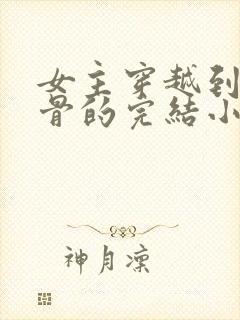 女主穿越到
骨的完結小
神月凜